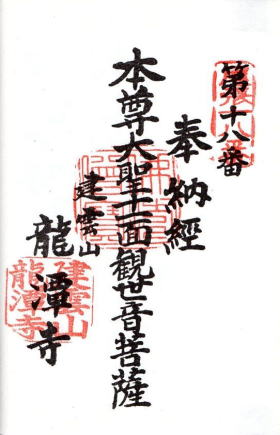 第十八番
奉納經
本尊大聖十一面観世音菩薩
建雲山
龍潭寺
建雲山
龍潭寺